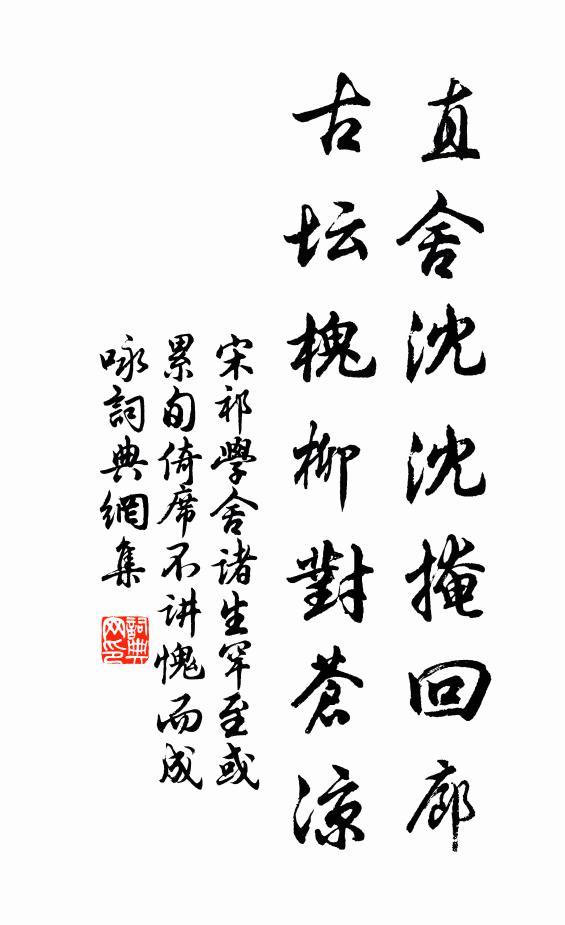 直舍沈沈掩回廊
古坛槐柳對蒼涼
宋祁學舍諸生罕至或
累旬倚席不讲愧而成
咏詞典網集
詞典网印